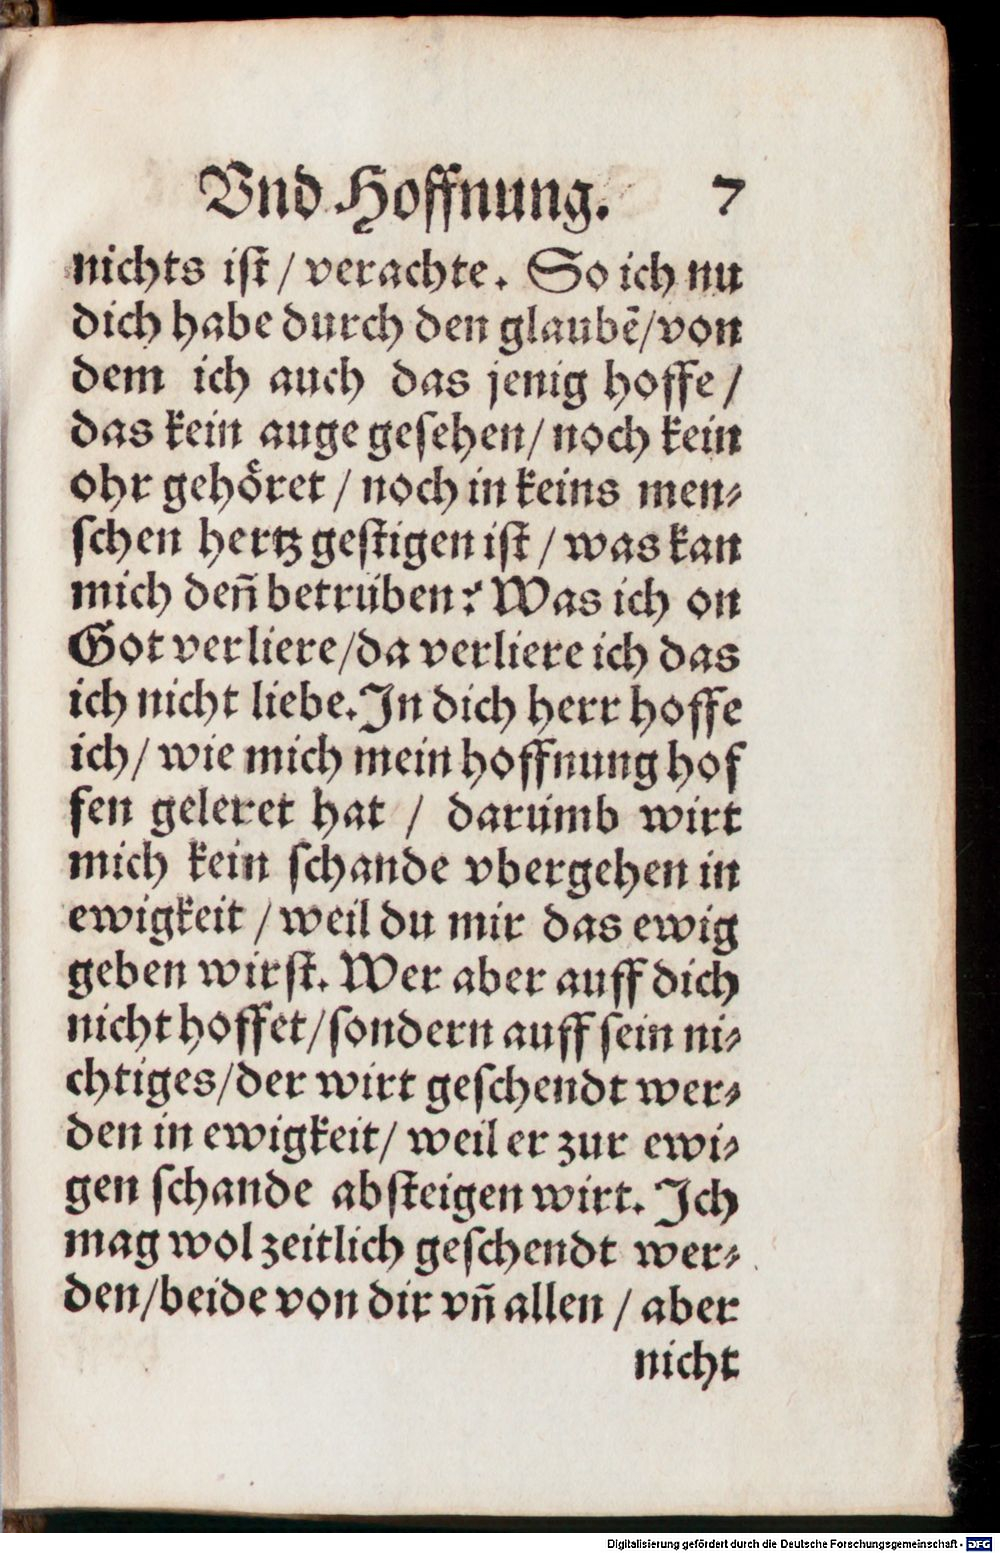 Vnd Hoffnung. 7
nichts ist / verachte. So ich nu
dich habe durch den glaubẽ/von
dem ich auch das jenig hoffe /
das kein auge gesehen/ noch kein
ohr gehöret / noch in keins men⸗
schen hertz gestigen ist / was kan
mich deñ betrüben? Was ich on
Got verliere/da verliere ich das
ich nicht liebe. In dich herr hoffe
ich/ wie mich mein hoffnung hof
fen geleret hat / darumb wirt
mich kein schande vbergehen in
ewigkeit / weil du mir das ewig
geben wirst. Wer aber auff dich
nicht hoffet/sondern auff sein ni⸗
chtiges/der wirt geschendt wer⸗
den in ewigkeit/ weil er zur ewi⸗
gen schande absteigen wirt. Ich
mag wol zeitlich geschendt wer⸗
den/beide von dir vñ allen / aber
nicht
Digitalisierung gefördert durch die Deutsche Forschungsgemeinschaft - DFG